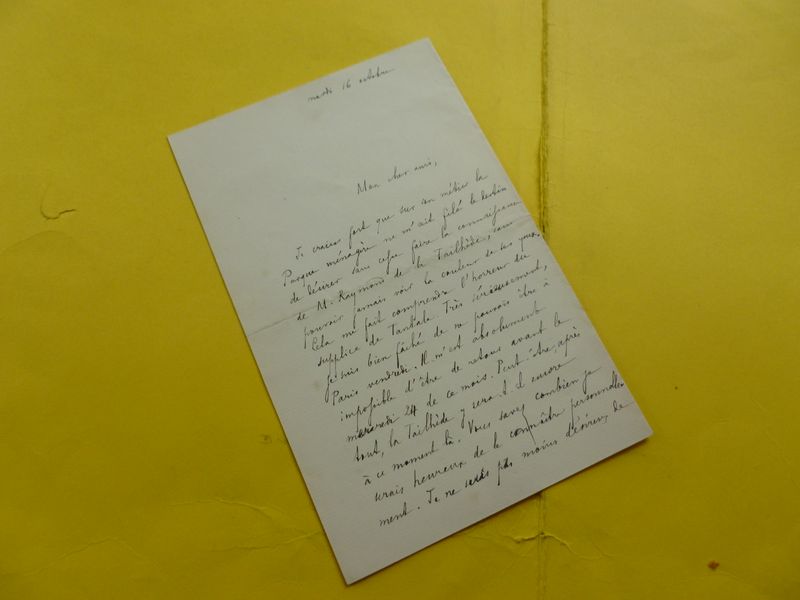 mardi 16 octobre
Mon cher ami,
Je crains fort que sur son métier la
Parque ménagère ne m'ait filé le destin
de désirer sans cesse faire la connaissance
de M. Raymond de la Tailhède, sans
pouvoir jamais voir la couleur de ses yeux.
Cela me fait comprendre l'horreur du
supplice de Tantale. Très sérieusement,
je suis bien fâché de ne pouvoir être à
Paris vendredi. Il m'est absolument
impossible d'être de retour avant le
mercredi 24 de ce mois. Peut-être, après
tout, la Tailhède y sera-t-il encore
à ce moment là. Vous savez combien je
serais heureux de le connaître personnelle
ment. Je ne serais pas moins désireux de